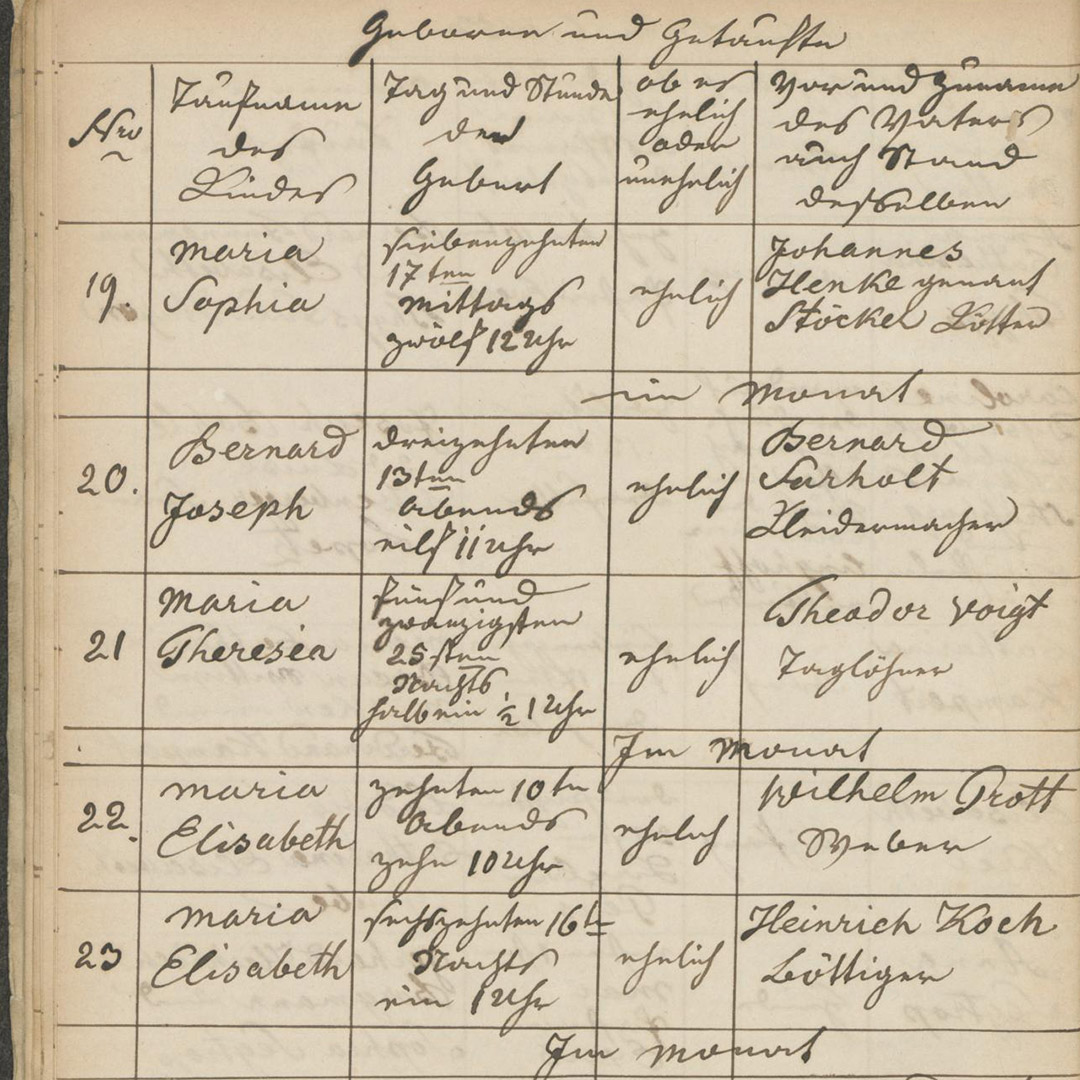 Geboren und Getaufte
Nro
Taufname
des
Kindes
Tag und Stunde
der
Geburt
ob es
ehelich
oder
unehelich
Vor und Zuname
des Vaters
auch Stand
desselben
19.
Maria
Sophia
siebenzehnten
17ten
Mittags
zwölf 12 Uhr
ehelich
Johannes
Henke genant
Stöcker Kötter
im Monat
20.
Bernard
Joseph
dreizehnten
13ten
Abends
eilf 11 Uhr
ehelich
Bernard
Sarholt
Kleidermacher
21
Maria
Theresia
fünf und
zwanzigsten
25sten
Nachts
halb ein ½ 1 Uhr
ehelich
Theodor Voigt
Taglöhner
Im Monat
22.
Maria
Elisabeth
zehnten 10tn
Abends
zehn 10 Uhr
ehelich
Wilhelm Grott
Weber
23
Maria
Elisabeth
sechszehnten 16tn
Nachts
ein 1 Uhr
ehelich
Heinrich Koch
Böttiger
Im Monat